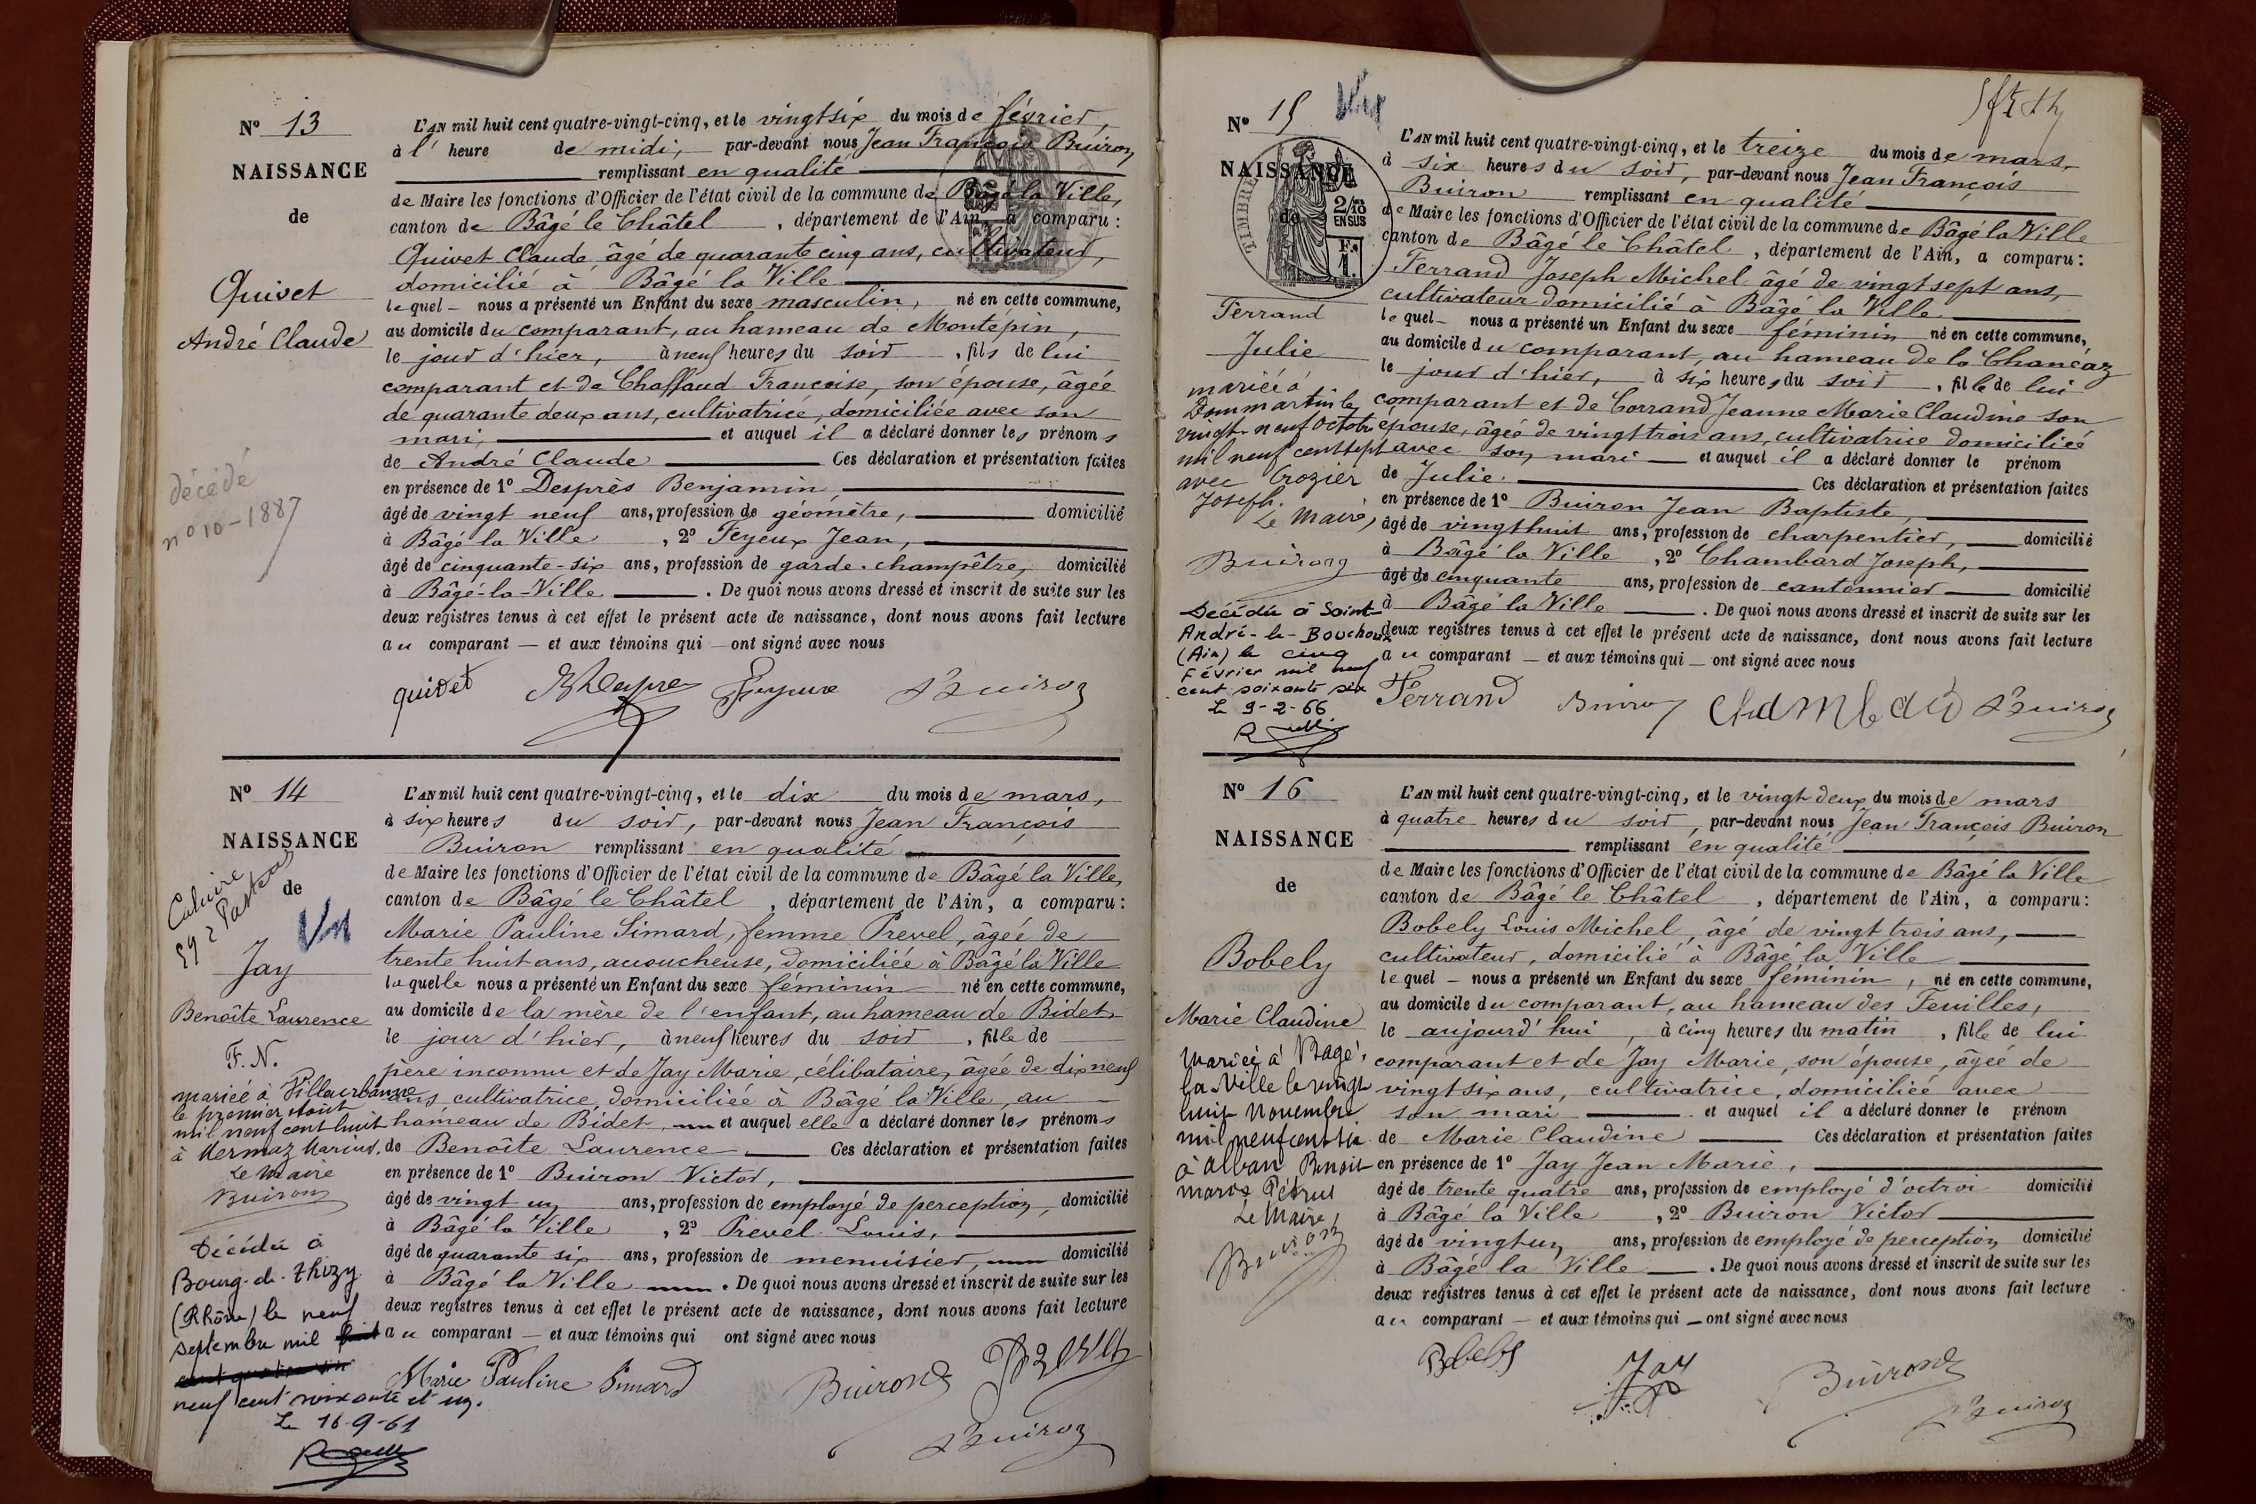 N° 13
NAISSANCE
de
Quivet
André Claude
décédé
n° 10-1887
L'AN mil huit cent quatre-vingt-cinq, et le vingt six du mois de février,
à l' heure de midi, par-devant nous Jean François Buiron,
remplissant en qualité
de Maire les fonctions d'Officier de l'état civil de la commune de Bâgé la Ville,
canton de Bâgé le Châtel, département de l'Ain, a comparu :
Quivet Claude, âgé de quarante cinq ans, cultivateur,
domicilié à Bâgé la Ville
lequel nous a présenté un Enfant du sexe masculin, né en cette commune,
au domicile du comparant, au hameau de Montépin,
le jour d'hier, à neuf heures du soir, fils de lui
comparant et de Chaffaud Françoise, son épouse, âgée
de quarante deux ans, cultivatrice, domiciliée avec son
mari, et auquel il a déclaré donner les prénoms
de André Claude Ces déclaration et présentation faites
en présence de 1° Desprès Benjamin,
âgé de vingt neuf ans, profession de géomètre, domicilié
à Bâgé la Ville, 2° Feyeux Jean,
âgé de cinquante-six ans, profession de garde-champêtre, domicilié
à Bâgé-la-Ville. De quoi nous avons dressé et inscrit de suite sur les
deux registres tenus à cet effet le présent acte de naissance, dont nous avons fait lecture
au comparant et aux témoins qui ont signé avec nous
quivet Feyeux Buiron
N° 14
NAISSANCE
de
Caluire
Vu
Jay
Benoîte Laurence
F. N.
mariée à Villeurbanne
le premier août
mil neuf cent huit
à Mermaz Marius.
Le Maire
Buiron
Décédée à
Bourg-de-Thizy
(Rhône) le neuf
septembre mil
neuf cent soixante et un.
Le 16-9-61
L'AN mil huit cent quatre-vingt-cinq, et le dix du mois de mars,
à six heures du soir, par-devant nous Jean François
Buiron remplissant en qualité
de Maire les fonctions d'Officier de l'état civil de la commune de Bâgé la Ville,
canton de Bâgé le Châtel, département de l'Ain, a comparu :
Marie Pauline Simard, femme Prevel, âgée de
trente huit ans, accoucheuse, domiciliée à Bâgé la Ville
laquelle nous a présenté un Enfant du sexe féminin né en cette commune,
au domicile de la mère de l'enfant, au hameau de Bidet,
le jour d'hier, à neuf heures du soir, fille de
père inconnu et de Jay Marie, célibataire, âgée de dix neuf
ans cultivatrice, domiciliée à Bâgé la Ville, au
hameau de Bidet et auquel elle a déclaré donner les prénoms
de Benoîte Laurence. Ces déclaration et présentation faites
en présence de 1° Buiron Victor,
âgé de vingt un ans, profession de employé de perception, domicilié
à Bâgé la Ville, 2° Prevel Louis,
âgé de quarante six ans, profession de menuisier, domicilié
à Bâgé la Ville. De quoi nous avons dressé et inscrit de suite sur les
deux registres tenus à cet effet le présent acte de naissance, dont nous avons fait lecture
au comparant et aux témoins qui ont signé avec nous
Marie Pauline Simard Buiron
Buiron
N° 15 Vu
NAISSANCE
de
TIMBRE
2/10
EN SUS
F. 1.
Ferrand
Julie
mariée à
Dommartin le
vingt-neuf Octobre
mil neuf cent sept
avec Crozier
Joseph.
Le Maire,
Buiron
Décédée à Saint-
André-le-Bouchoux
(Ain) le cinq
Février mil neuf
cent soixante six
Le 9-2-66
L'AN mil huit cent quatre-vingt-cinq, et le treize du mois de mars,
à six heures du soir, par-devant nous Jean François
Buiron remplissant en qualité
de Maire les fonctions d'Officier de l'état civil de la commune de Bâgé la Ville
canton de Bâgé le Châtel, département de l'Ain, a comparu :
Ferrand Joseph Michel âgé de vingt sept ans,
cultivateur domicilié à Bâgé la Ville
lequel nous a présenté un Enfant du sexe féminin né en cette commune,
au domicile du comparant, au hameau de la Chanéaz
le jour d'hier, à six heures du soir, fille de lui
comparant et de Corrand Jeanne Marie Claudine son
épouse, âgée de vingt trois ans, cultivatrice domiciliée
avec son mari et auquel il a déclaré donner le prénom
de Julie. Ces déclaration et présentation faites
en présence de 1° Buiron Jean Baptiste,
âgé de vingt huit ans, profession de charpentier, domicilié
à Bâgé la Ville, 2° Chambard Joseph,
âgé de cinquante ans, profession de cantonnier domicilié
à Bâgé la Ville. De quoi nous avons dressé et inscrit de suite sur les
deux registres tenus à cet effet le présent acte de naissance, dont nous avons fait lecture
au comparant et aux témoins qui ont signé avec nous
Ferrand Buiron Buiron
N° 16
NAISSANCE
de
Bobely
Marie Claudine
Mariée à Bagé-
la-Ville le vingt
huit Novembre
mil neuf cent six
à Alban Benoit
Marie Pétrus
Le Maire,
Buiron
L'AN mil huit cent quatre-vingt-cinq, et le vingt deux du mois de mars
à quatre heures du soir, par-devant nous Jean François Buiron
remplissant en qualité
de Maire les fonctions d'Officier de l'état civil de la commune de Bâgé la Ville
canton de Bâgé le Châtel, département de l'Ain, a comparu :
Bobely Louis Michel, âgé de vingt trois ans,
cultivateur, domicilié à Bâgé la Ville
lequel nous a présenté un Enfant du sexe féminin, né en cette commune,
au domicile du comparant, au hameau des Feuilles,
le aujourd'hui, à cinq heures du matin, fille de lui
comparant et de Jay Marie, son épouse, âgée de
vingt six ans, cultivatrice, domiciliée avec
son mari et auquel il a déclaré donner le prénom
de Marie Claudine Ces déclaration et présentation faites
en présence de 1° Jay Jean Marie,
âgé de trente quatre ans, profession de employé d'octroi domicilié
à Bâgé la Ville, 2° Buiron Victor
âgé de vingt un ans, profession de employé de perception domicilié
à Bâgé la Ville. De quoi nous avons dressé et inscrit de suite sur les
deux registres tenus à cet effet le présent acte de naissance, dont nous avons fait lecture
au comparant et aux témoins qui ont signé avec nous
Bobely Jay Buiron
Buiron